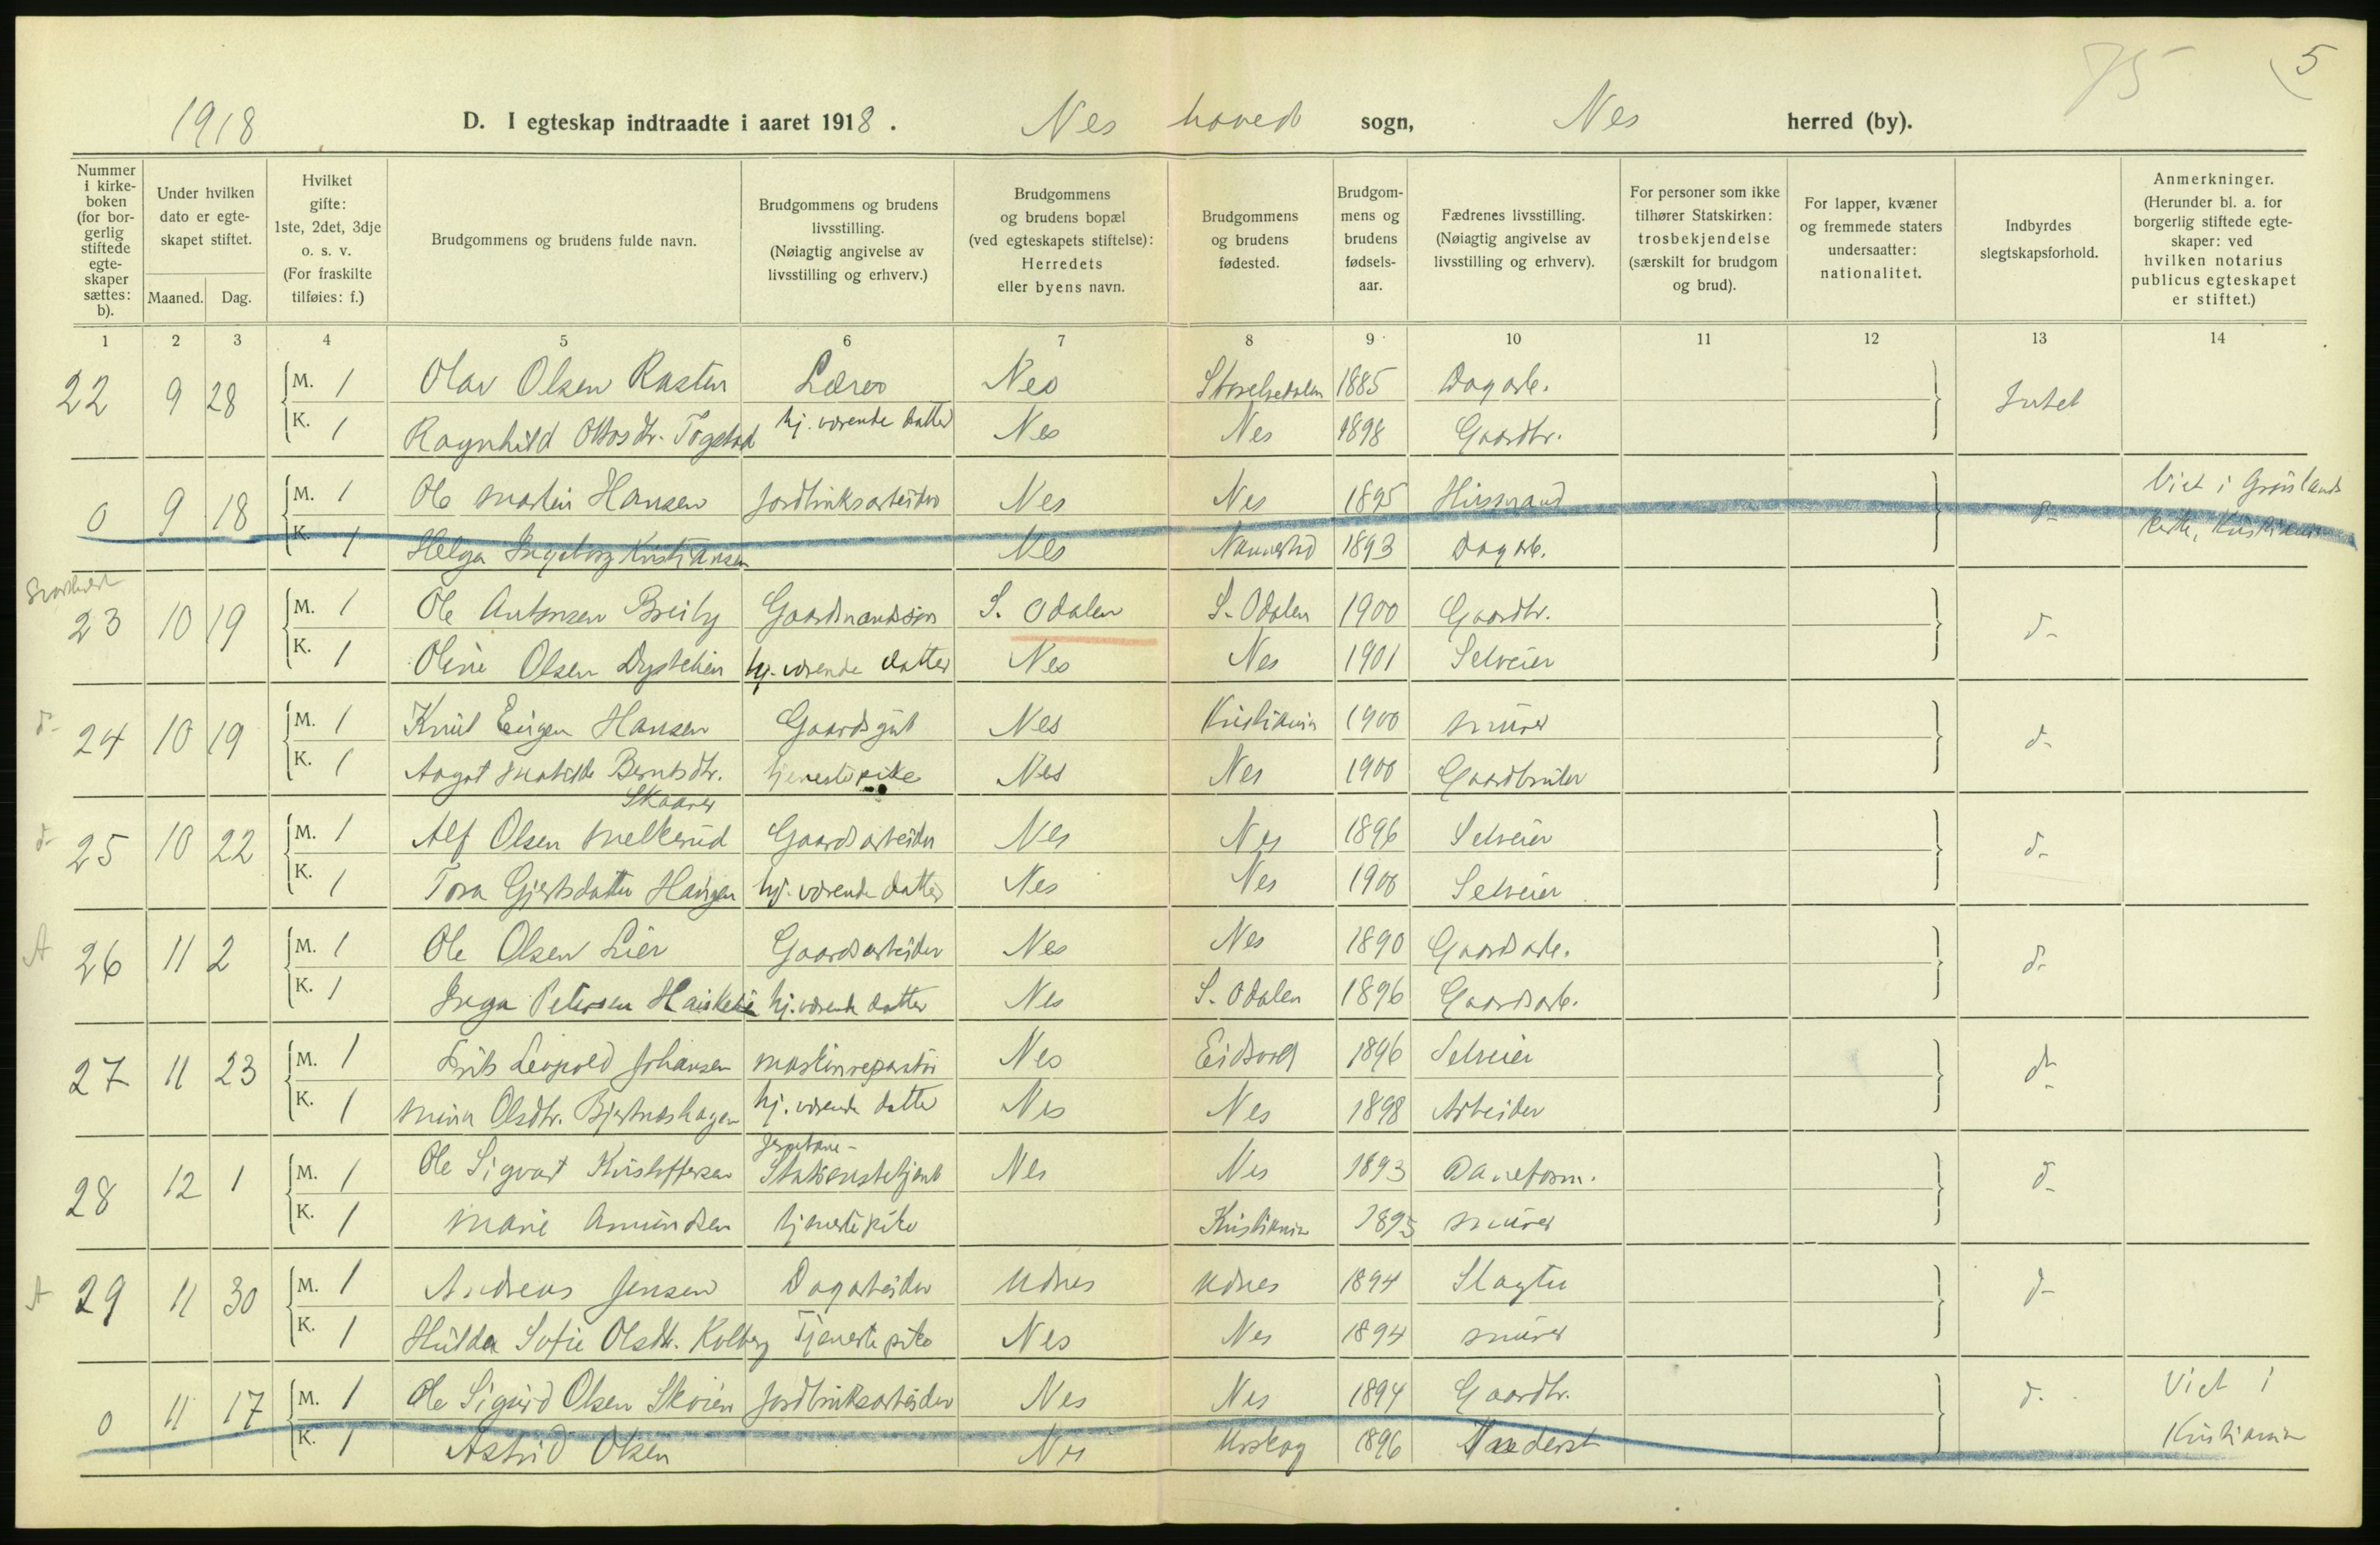 75
5
1918 D. I egteskap indtraadte i aaret 1918. Nes hoved sogn, Nes herred (by).
Nummer i kirke-boken (for bor-gerlig stiftede egte-skaper sættes: b).
Under hvilken dato er egte-skapet stiftet.
Maaned. Dag.
Hvilket gifte: 1ste, 2det, 3dje o. s. v. (For fraskilte tilføies: f.)
Brudgommens og brudens fulde navn.
Brudgommens og brudens livsstilling. (Nøiagtig angivelse av livsstilling og erhverv.)
Brudgommens og brudens bopæl (ved egteskapets stiftelse): Herredets eller byens navn.
Brudgommens og brudens fødested.
Brudgom-mens og brudens fødsels-aar.
Fædrenes livsstilling. (Nøiagtig angivelse av livsstilling og erhverv).
For personer som ikke tilhører Statskirken: trosbekjendelse (særskilt for brudgom og brud).
For lapper, kvæner og fremmede staters undersaatter: nationalitet.
Indbyrdes slegtskapsforhold.
Anmerkninger. (Herunder bl. a. for borgerlig stiftede egte-skaper: ved hvilken notarius publicus egteskapet er stiftet.)
1 2 3 4 5 6 7 8 9 10 11 12 13 14
22 9 28 M. 1 Olav Olsen Rasten Lærer Nes 1885 Dagarb. Intet
K. 1 Ragnhild Ottosdtr. Togstad hj. værende datter Nes Nes 1898 Gaardbr.
0 9 18 M. 1 Ole Martin Hansen Jordbruksarbeider Nes Nes 1895 Husmand d- Viet i Grønlands
K. 1 Helga Ingeborg Kristiansen Nes Nannestad 1893 Dagarb. kirke, Kristiania
23 10 19 M. 1 Ole Antonsen Breiby Gaardmandssøn S. Odalen S. Odalen 1900 Gaardbr. d-
K. 1 Oline Olsen Dystebien hj. værende datter Nes Nes 1901 Selveier
d- 24 10 19 M. 1 Knut Eugen Hansen Gaardsgut Nes Kristiania 1900 Murer d-
K. 1 Aagot Mathilde Berntsdtr. Skaarer tjenestepike Nes Nes 1900 Gaardbruker
d- 25 10 22 M. 1 Alf Olsen Melkerud Gaardsarbeider Nes Nes 1896 Selveier d-
K. 1 Tora Gjertsdatter Haugen hj. værende datter Nes Nes 1900 Selveier
A 26 11 2 M. 1 Ole Olsen Lier Gaardsarbeider Nes Nes 1890 Gaardsarb. d-
K. 1 Inga Petersen hj. værende datter Nes S. Odalen 1896 Gaardsarb.
27 11 23 M. 1 Frits Leopold Johansen Maskinreparatør Nes Eidsvold 1896 Selveier d-
K. 1 Mina Olsdtr. Bjertnæshagen hj. værende datter Nes Nes 1898 Arbeider
28 12 1 M. 1 Ole Sigvart Kristoffersen Jernbane-
Stationsbetjent Nes Nes 1893 Baneform. d-
K. 1 Marie Amundsen tjenestepike Kristiania 1895 Murer
A 29 11 30 M. 1 Andreas Jensen Dagarbeider Udnes Udnes 1894 Slagter d-
K. 1 Hulda Sofie Olsdtr. Kolberg Tjenestepike Nes Nes 1894 Murer
0 11 17 M. 1 Ole Sigurd Olsen Skøien Jordbruksarbeider Nes Nes 1894 Gaardbr. d- Viet i
K. 1 Astrid Olsen Nes Urskog 1896 Kristiania